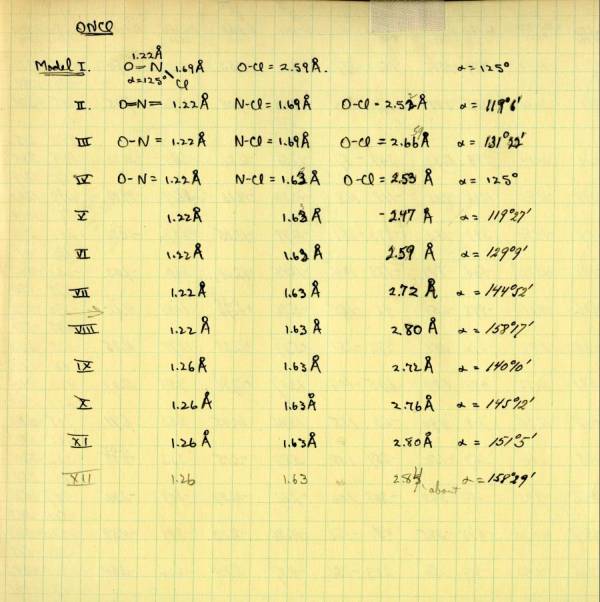 ONCl
1.22Å
Model I. O=N 1.69Å O-Cl = 2.59Å. α = 125°
α=125° Cl
II. O=N = 1.22Å N-Cl = 1.69Å O-Cl = 2.52Å α = 119°6'
III O-N = 1.22Å N-Cl = 1.69Å O-Cl = 2.66Å α = 131°22'
IV O-N = 1.22Å N-Cl = 1.63Å O-Cl = 2.53Å α = 125°
V 1.22Å 1.63Å 2.47Å α = 119°27'
VI 1.22Å 1.63Å 2.59Å α = 129°9'
VII 1.22Å 1.63Å 2.72Å α = 144°52'
VIII 1.22Å 1.63Å 2.80Å α = 158°17'
IX 1.26Å 1.63Å 2.72Å α = 140°10'
X 1.26Å 1.63Å 2.76Å α = 145°12'
XI 1.26Å 1.63Å 2.80Å α = 151°5'
XII 1.26 1.63 2.84 about α = 158°29'